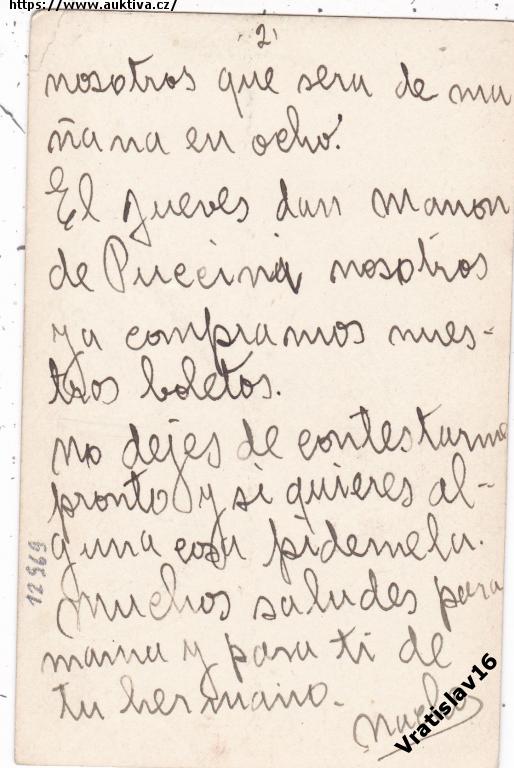 https://www.auktiva.cz/
2
nosotros que sera de ma
ñana en ocho.
El Jueves dan Manon
de Puccini nosotros
ya compramos nues-
tros boletos.
no dejes de contestarme
pronto y si quieres al-
guna cosa pidemela.
Muchos saludes para
mama y para ti de
tu hermano.
12969
Vratislav16